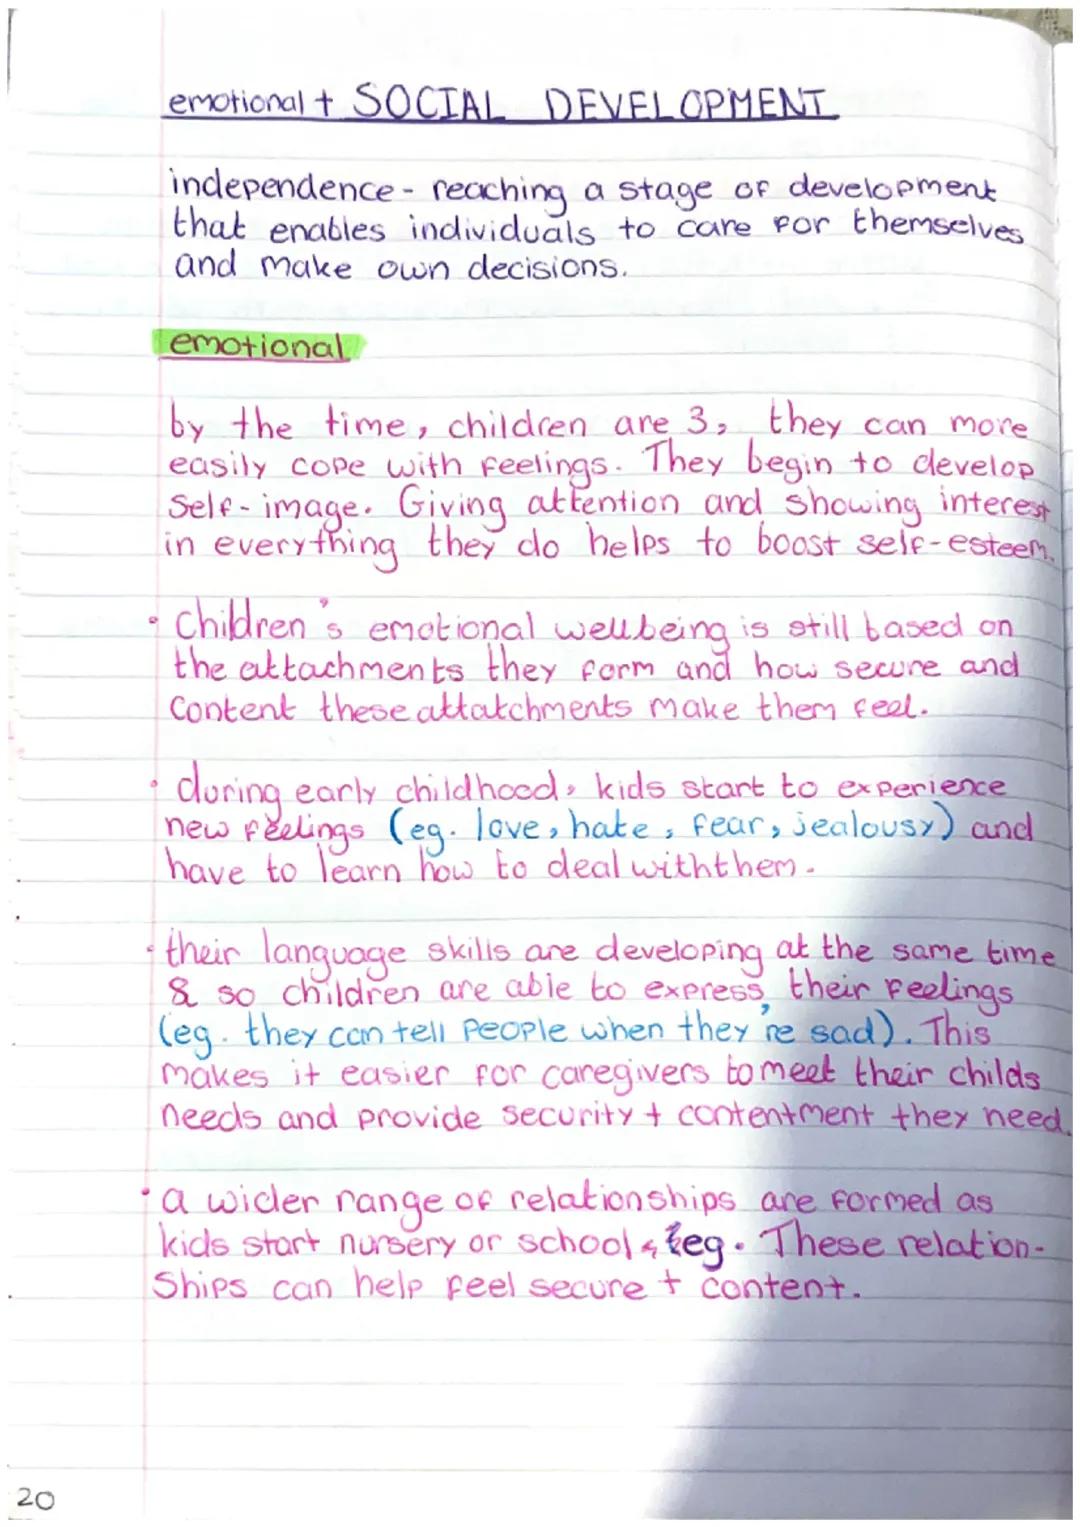 emotional + SOCIAL DEVELOPMENT
independence - reaching a stage of development
that enables individuals to care for themselves
and make own decisions.
emotional
by the time, children are 3, they can more
easily cope with feelings. They begin to develop
self-image. Giving attention and showing interest
in everything they do helps to boost self-esteem.
• Children's emotional wellbeing is still based on
the attachments they form and how secure and
content these attatchments make them feel.
• during early childhood, kids start to experience
new feelings (eg. love, hate, fear, jealousy) and
have to learn how to deal with them.
• their language skills are developing at the same time
& so children are able to express their feelings
(eg. they can tell people when they're sad). This
makes it easier for caregivers to meet their childs
needs and provide security + contentment they need.
• a wider range of relationships are formed as
kids start nursery or school eg. These relation-
ships can help feel secure + content.
20